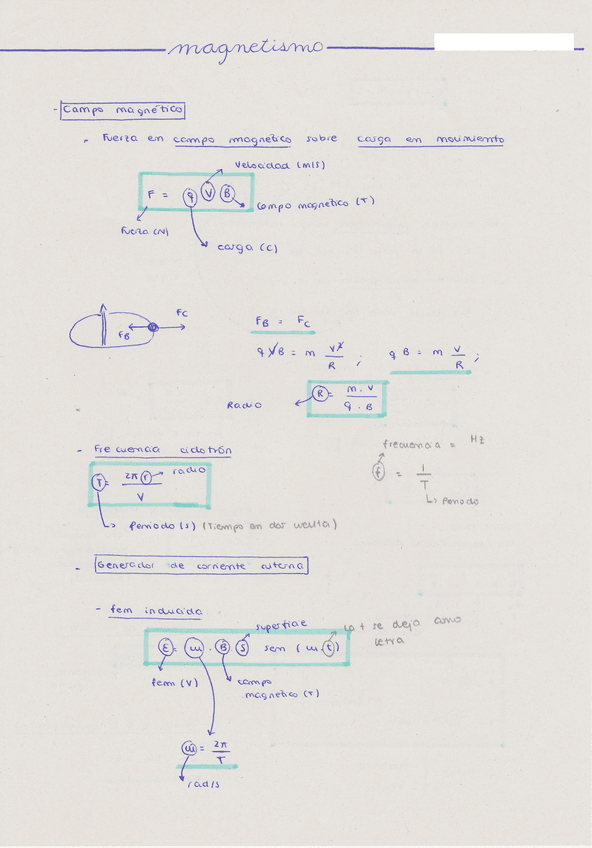 magnetismo
- Campo magnético
- Fuerza en campo magnético sobre carga en movimiento
velocidad (m/s)
F = q V B
campo magnético (T)
fuerza (N)
carga (C)
FC
FB
FB = FC
q V B = m V² / R ; q B = m V / R ;
Radio
R = m · V / q · B
- Frecuencia ciclotrón
frecuencia = Hz
T = 2π r / V
radio
f = 1 / T
Periodo
Periodo (s) (Tiempo en dar vuelta)
- Generador de corriente alterna
- fem inducida
superficie
la t se deja como letra
ε = ω · B S sen (ω · t)
fem (V)
campo magnético (T)
ω = 2π / T
rad/s